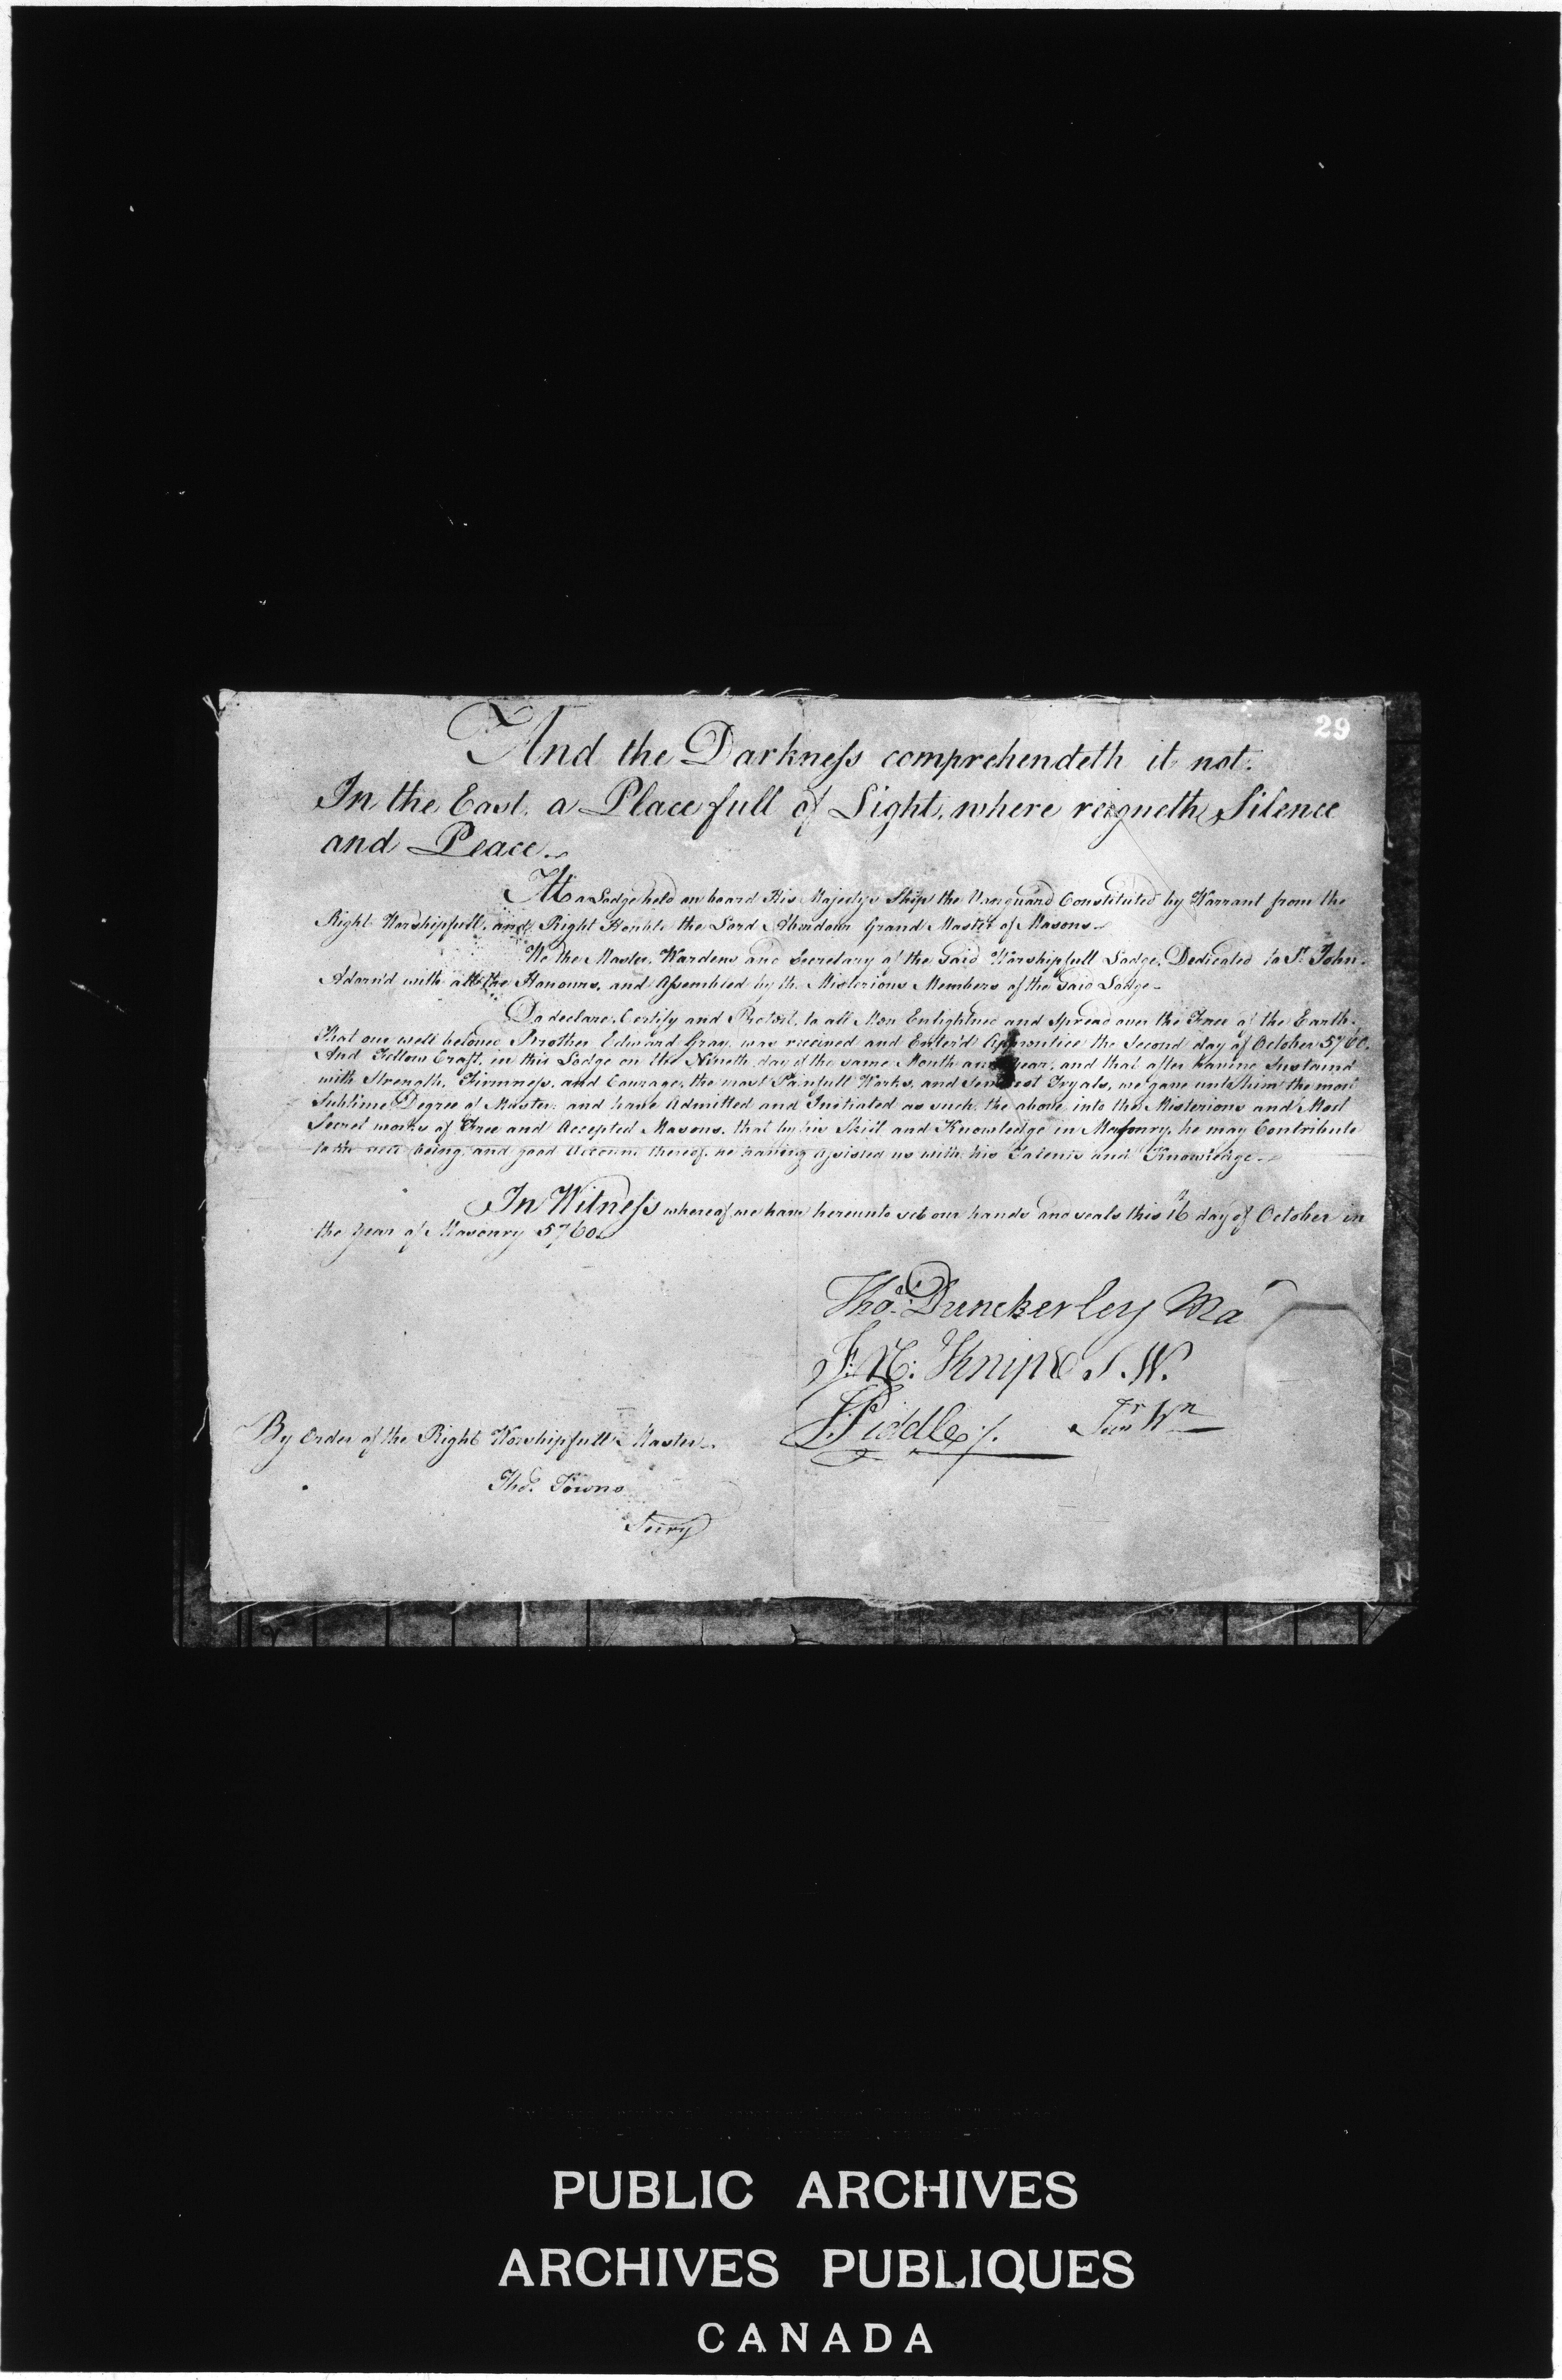 29
And the Darkness comprehendeth it not.
In the East, a Place full of Light, where reigneth Silence
and Peace.
At a Lodge held on board His Majestys Ship the Vanguard Constituted by Warrant from the
Right Worshipfull, and Right Honble the Lord Aberdour Grand Master of Masons
We the Master, Wardens and Secretary of the said Worshipfull Lodge, Dedicated to St. John.
Adorn'd with all the Honours, and Assembled by the Misterious Members of the said Lodge
Do declare, Certify and Protest, to all Men Enlightned and spread over the Face of the Earth.
That our well beloved Brother Edward Gray, was received and Enter'd Apprentice the Second day of October 5760.
And Fellow Craft, in this Lodge on the Nineth day of the same Month and year, and that after having Sustained
with Strength, Firmness, and Courage, the most Painfull Works, and Tryals, we gave unto him the most
Sublime Degree of Master; and have Admitted and Initiated as such, the above into the Misterious and Most
Secret works of Free and Accepted Masons, that by his Skill and Knowledge in Masonry, he may Contribute
to the well being, and good Account thereof, he having Assisted us with his Talents and Knowledge.
In Witness whereof we have hereunto set our hands and seals this 16 day of October in
the year of Masonry 5760.
Tho.s Dunckerley Ma
Knipe S.W.
Piddle Jun.r W.n
By Order of the Right Worshipfull Master.
Tho.s Towns
Secry
PUBLIC ARCHIVES
ARCHIVES PUBLIQUES
CANADA